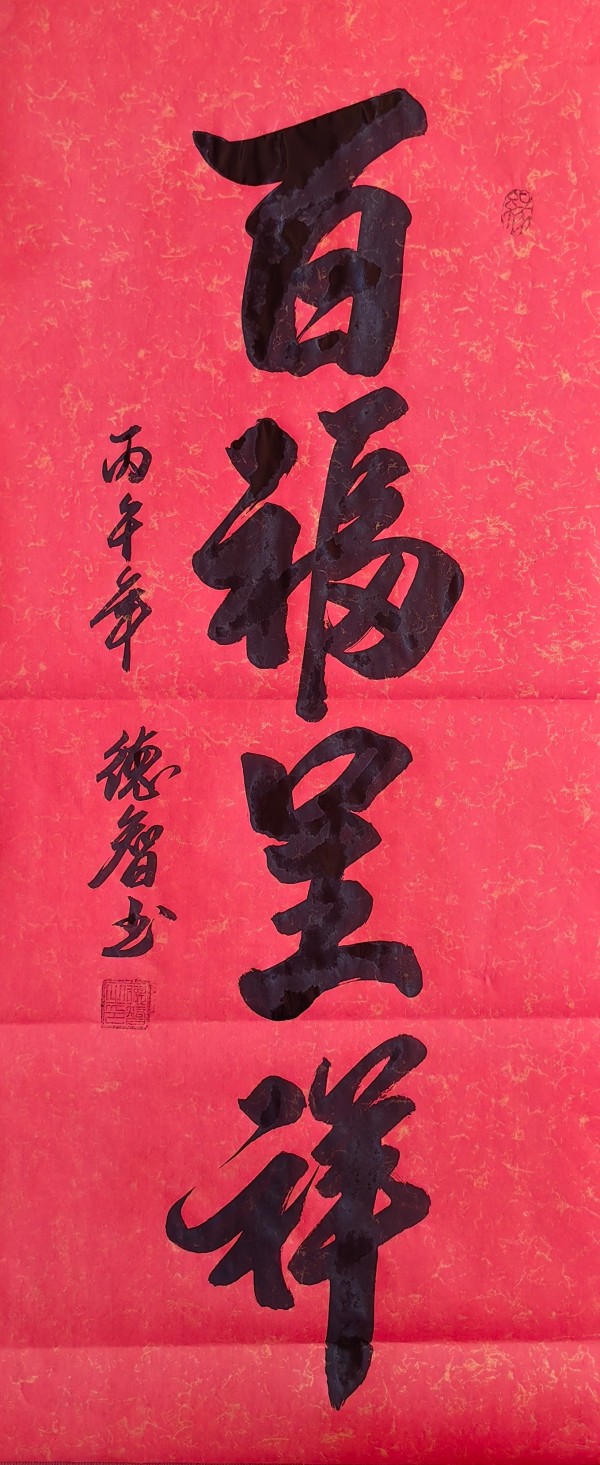 百福呈祥
丙午年 德智书